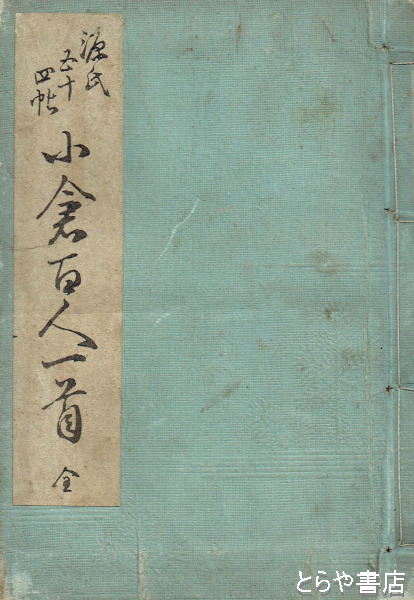 源氏
五十
四帖
小倉百人一首 全
とらや書店